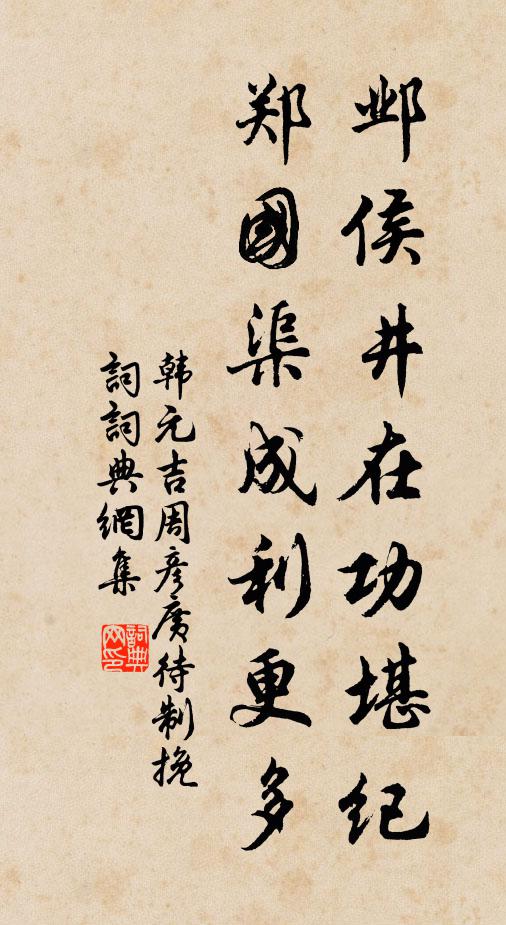 邺侯井在功堪纪
郑國渠成利更多
韩元吉周彦廣待制挽
詞詞典網集
詞典网印